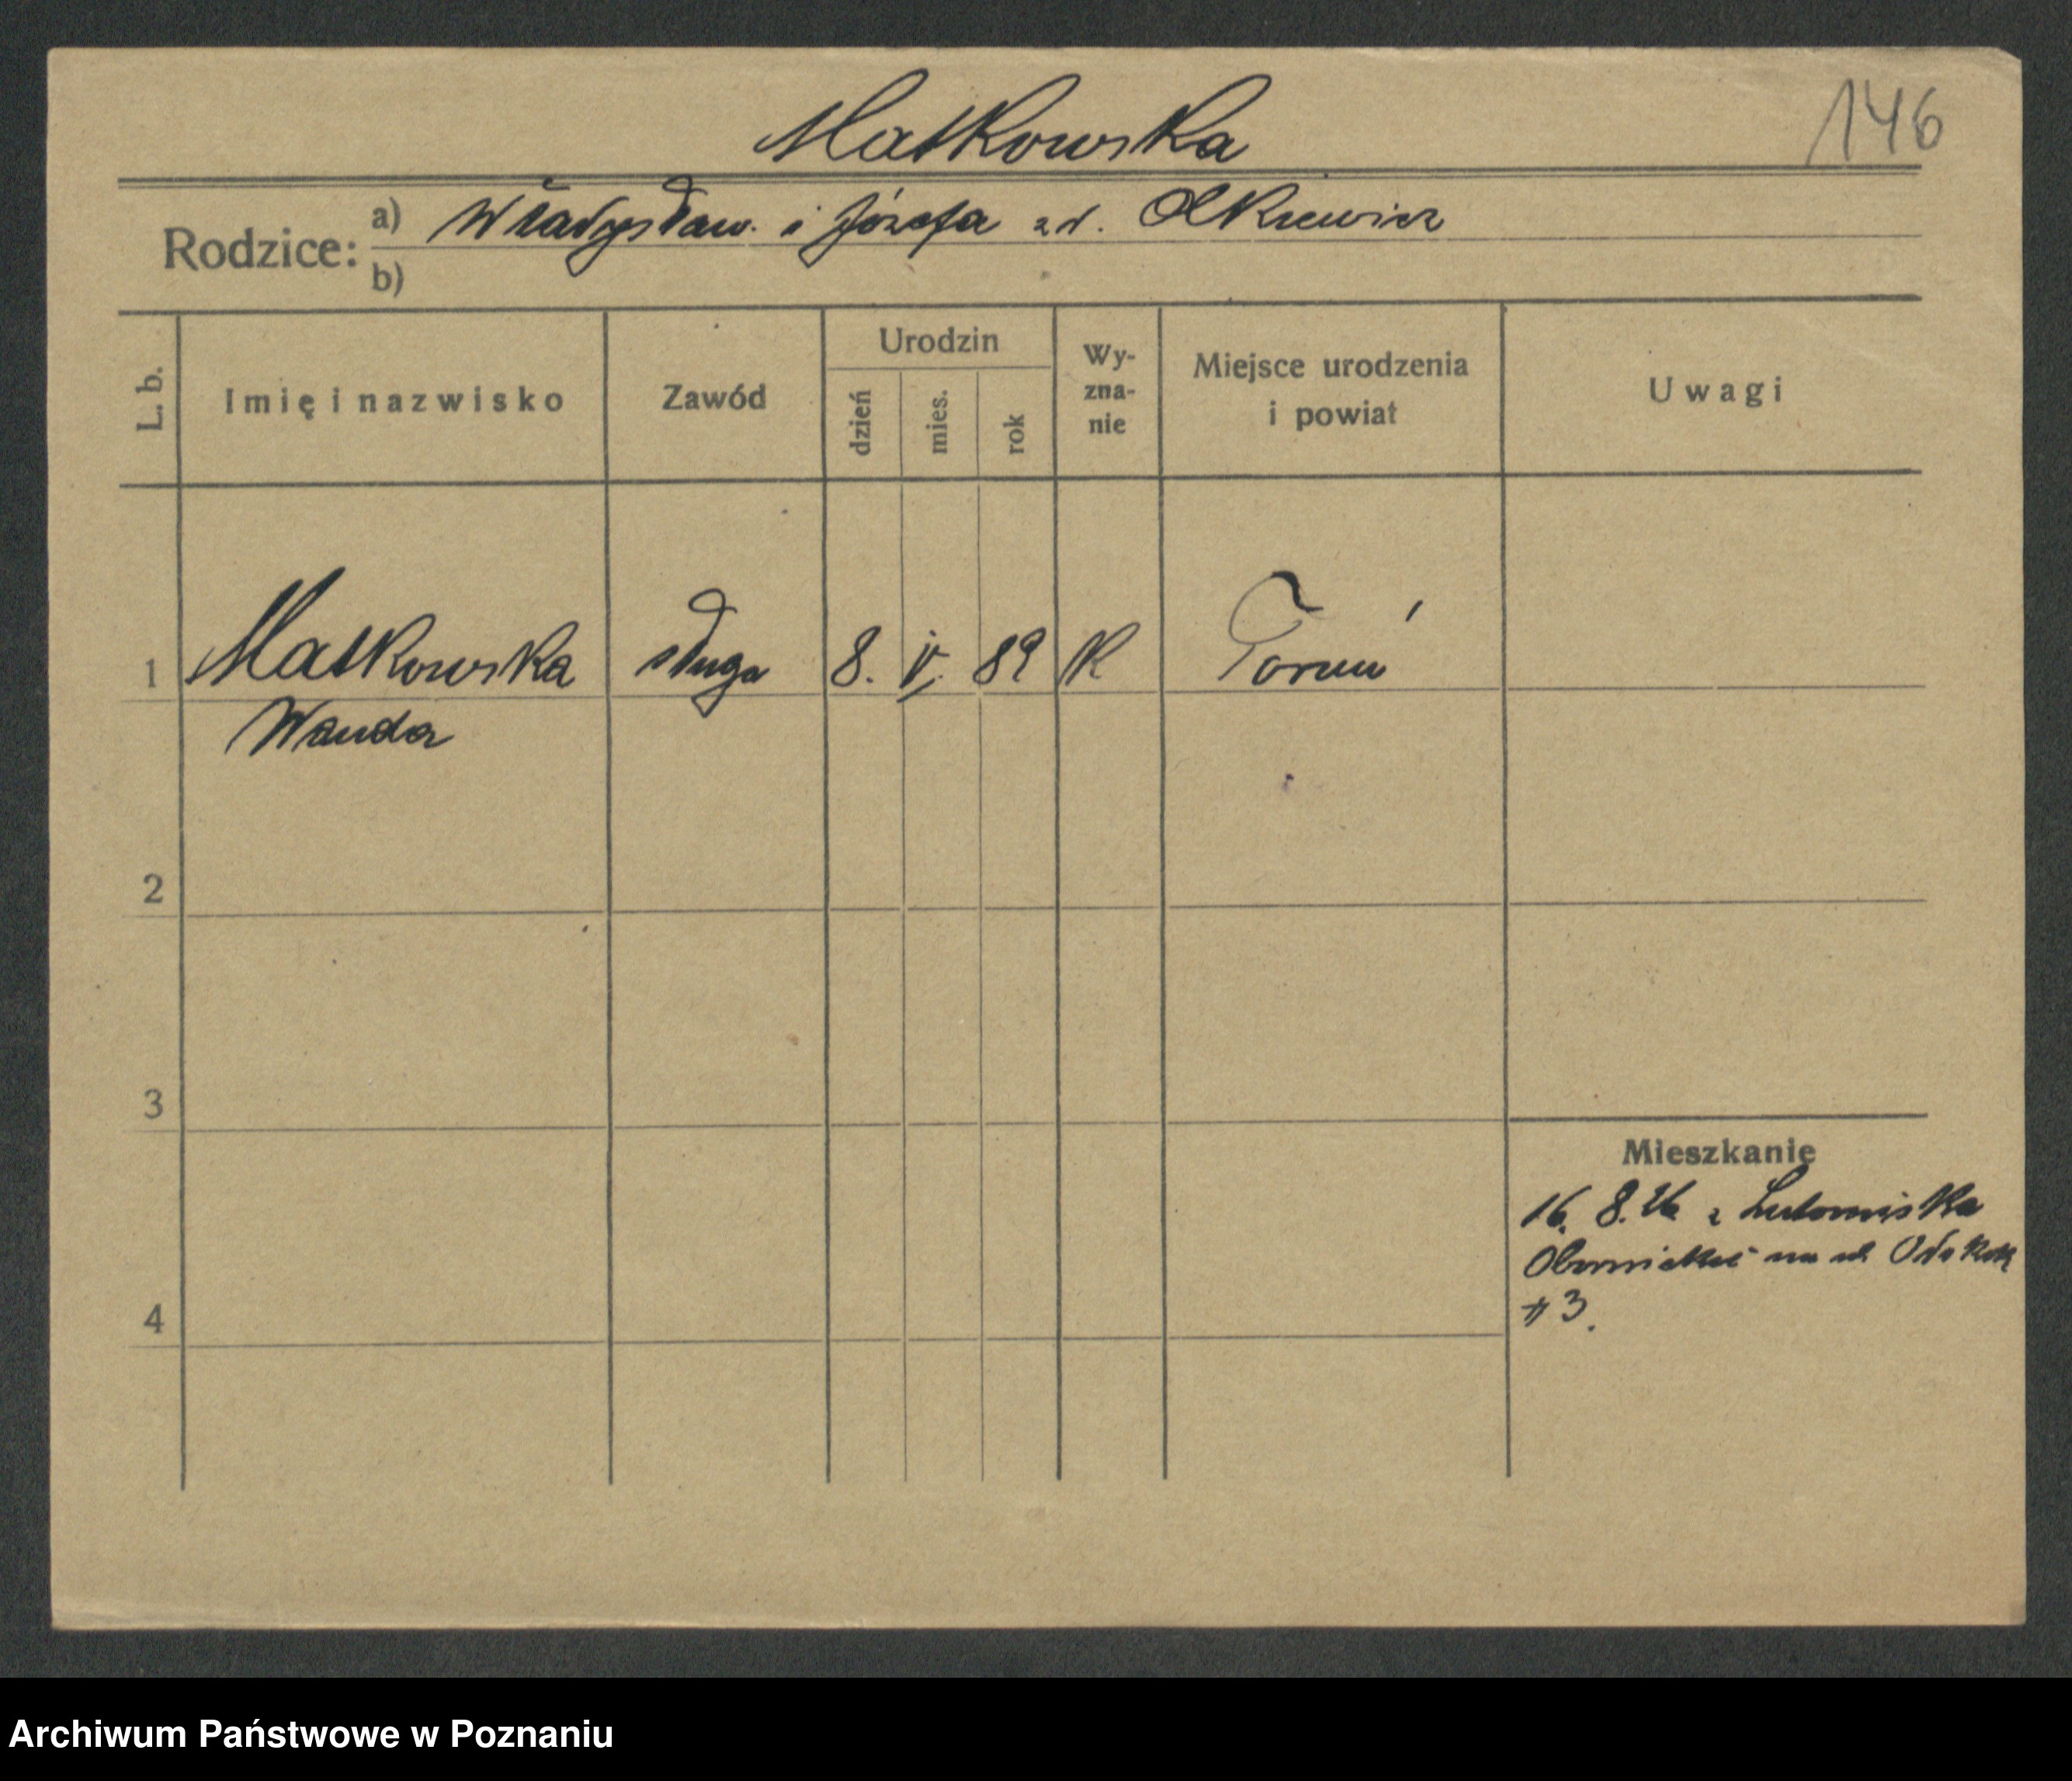 Matkowska
146
Rodzice: a) Władysław. i Józefa zd. Olkiewicz
b)
L. b.
Imię i nazwisko
Zawód
Urodzin
dzień
mies.
rok
Wy-
zna-
nie
Miejsce urodzenia
i powiat
Uwagi
1 Matkowska sługa 8. V. 89 K Toruń
Wanda
2
3
4
Mieszkanie
16. 8. 26 z Lutomiska
na ul.
# 3.
Archiwum Państwowe w Poznaniu